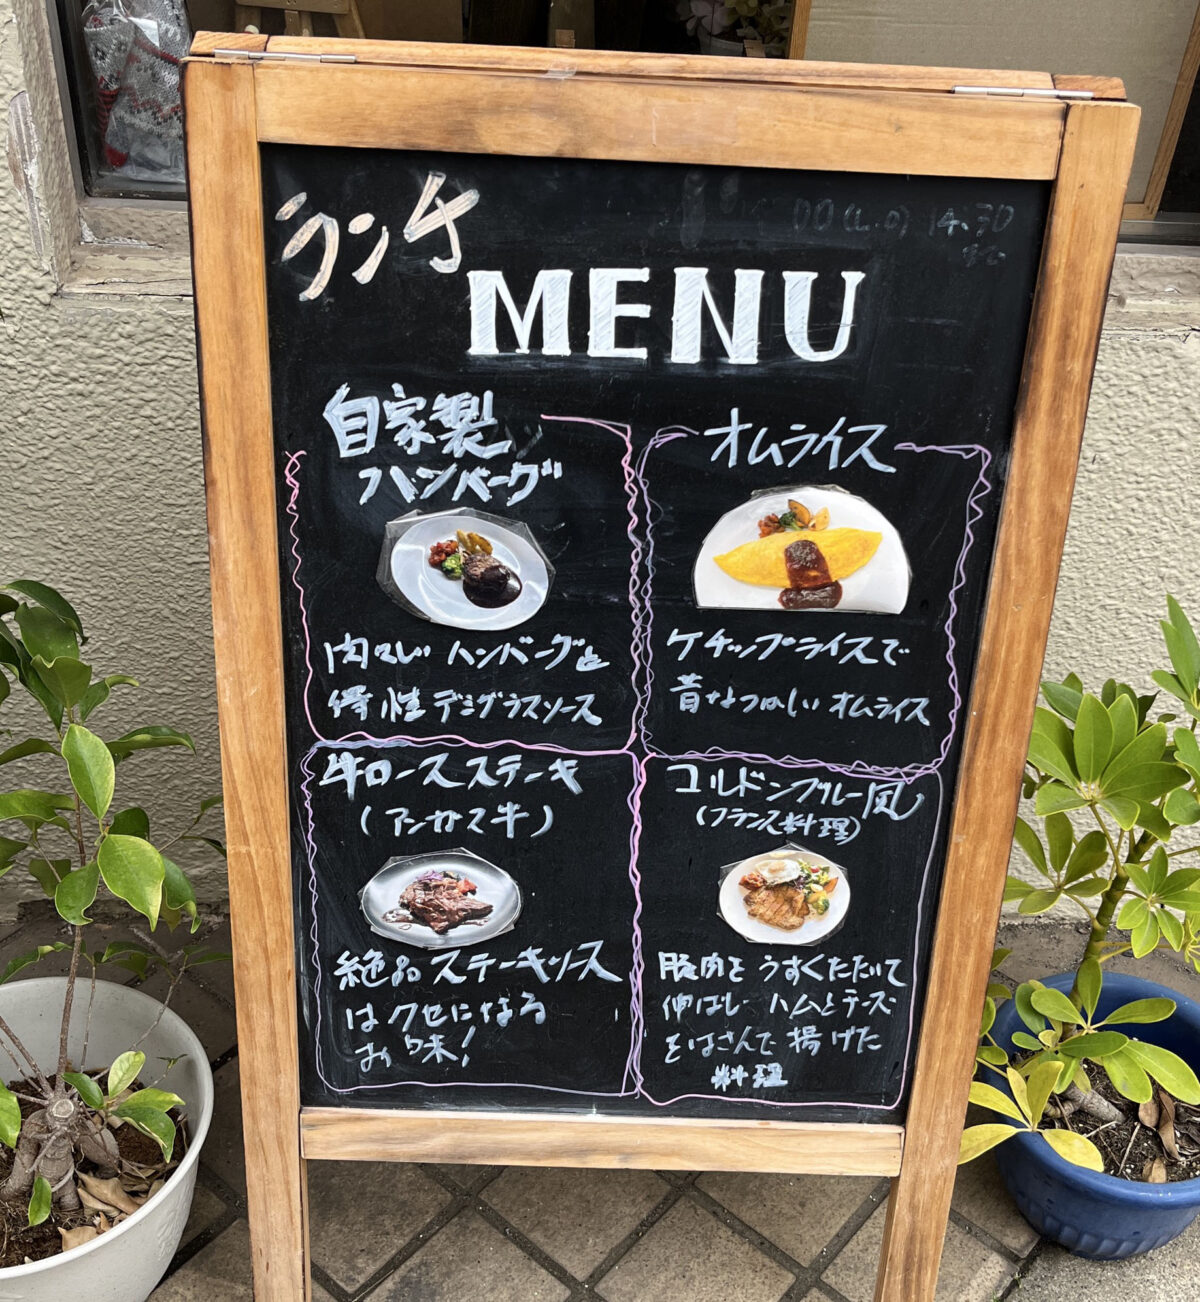 ランチ
MENU
14:30
自家製
ハンバーグ
肉々しい ハンバーグと
特性デミグラスソース
オムライス
ケチャップライスで
昔なつかしい オムライス
牛ロースステーキ
(アンガス牛)
絶品ステーキソース
はクセになる
お味!
コルドンブルー風
(フランス料理)
豚肉を うすくたたいて
伸ばし ハムとチーズ
をはさんで 揚げた
料理